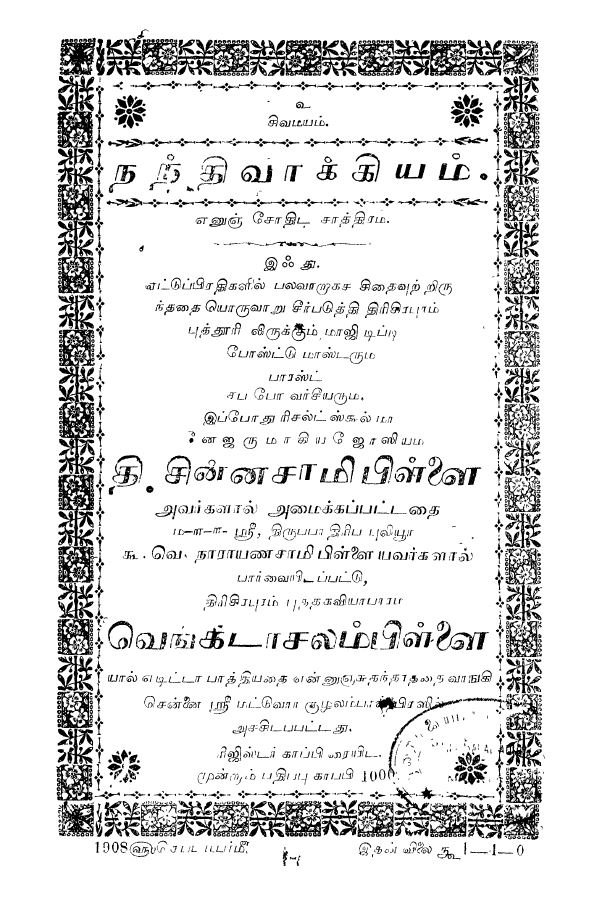 உ
சிவமயம்.
நந்திவாக்கியம்.
எனுஞ் சோதிட சாத்திரம.
இஃது.
ஏட்டுப்பிரதிகளில் பலவாறாகச் சிதைவுற்றிரு
ந்ததை யொருவாறு சீர்படுத்தி திரிசிரபுரம்
புத்தூரி லிருக்கும் மாஜி டிப்டி
போஸ்ட்டு மாஸ்டரும
பாரஸ்ட்
இப்போது ரிசல்ட் ஸ்கூல் மா
னேஜருமாகிய ஜோஸியம
தி. சின்னசாமிபிள்ளை
அவர்களால் அமைக்கப்பட்டதை
ம-ள-ள-ஸ்ரீ, திருப்பாதிரிப் புலியூர்
கூ. வெ. நாராயணசாமி பிள்ளையவர்களால்
பார்வையிடப்பட்டு,
திரிசிரபுரம் புத்தகவியாபாரம
வெங்கடாசலம்பிள்ளை
யால் எடிட்டர் பாத்தியதை என்னுஞ்சுதந்தரத்தை வாங்கி
சென்னை ஸ்ரீ மட்டுவார் குழலாம்பாள் பிரஸில்
அச்சிடப்பட்டது.
ரிஜிஸ்டர் காப்பி ரைடிட்.
மூன்றாம் பதிப்பு காபபி 1000
1908
இதன் விலை ரூ 1—1—0